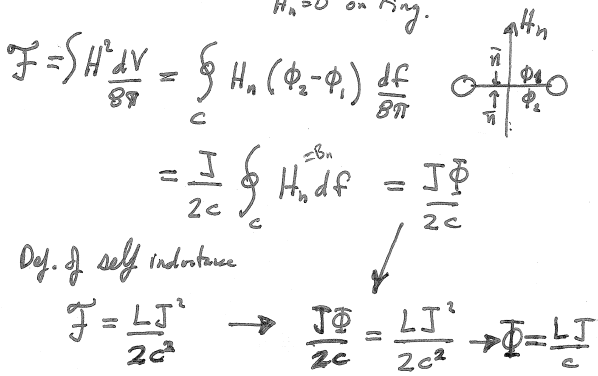 H_n = 0 on ring.
H_n
ℱ = ∫ H² dV/8π = ∮_C H_n (ϕ₂ - ϕ₁) df/8π
n̄ ϕ₁
n̄ ϕ₂
= J/2c ∮_C H_n df = JΦ/2c
=B_n
Def. of self inductance
ℱ = LJ²/2c² → JΦ/2c = LJ²/2c² → Φ = LJ/c